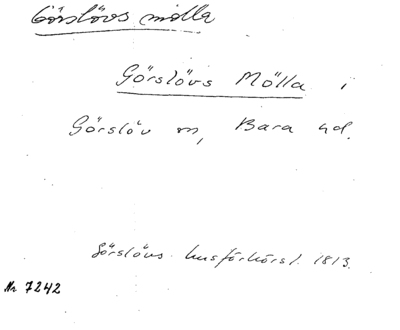 Görslövs mölla
Görslövs Mölla i
Görslöv sn, Bara hd.
Görslövs husförhörsl. 1813.
Nr 7242